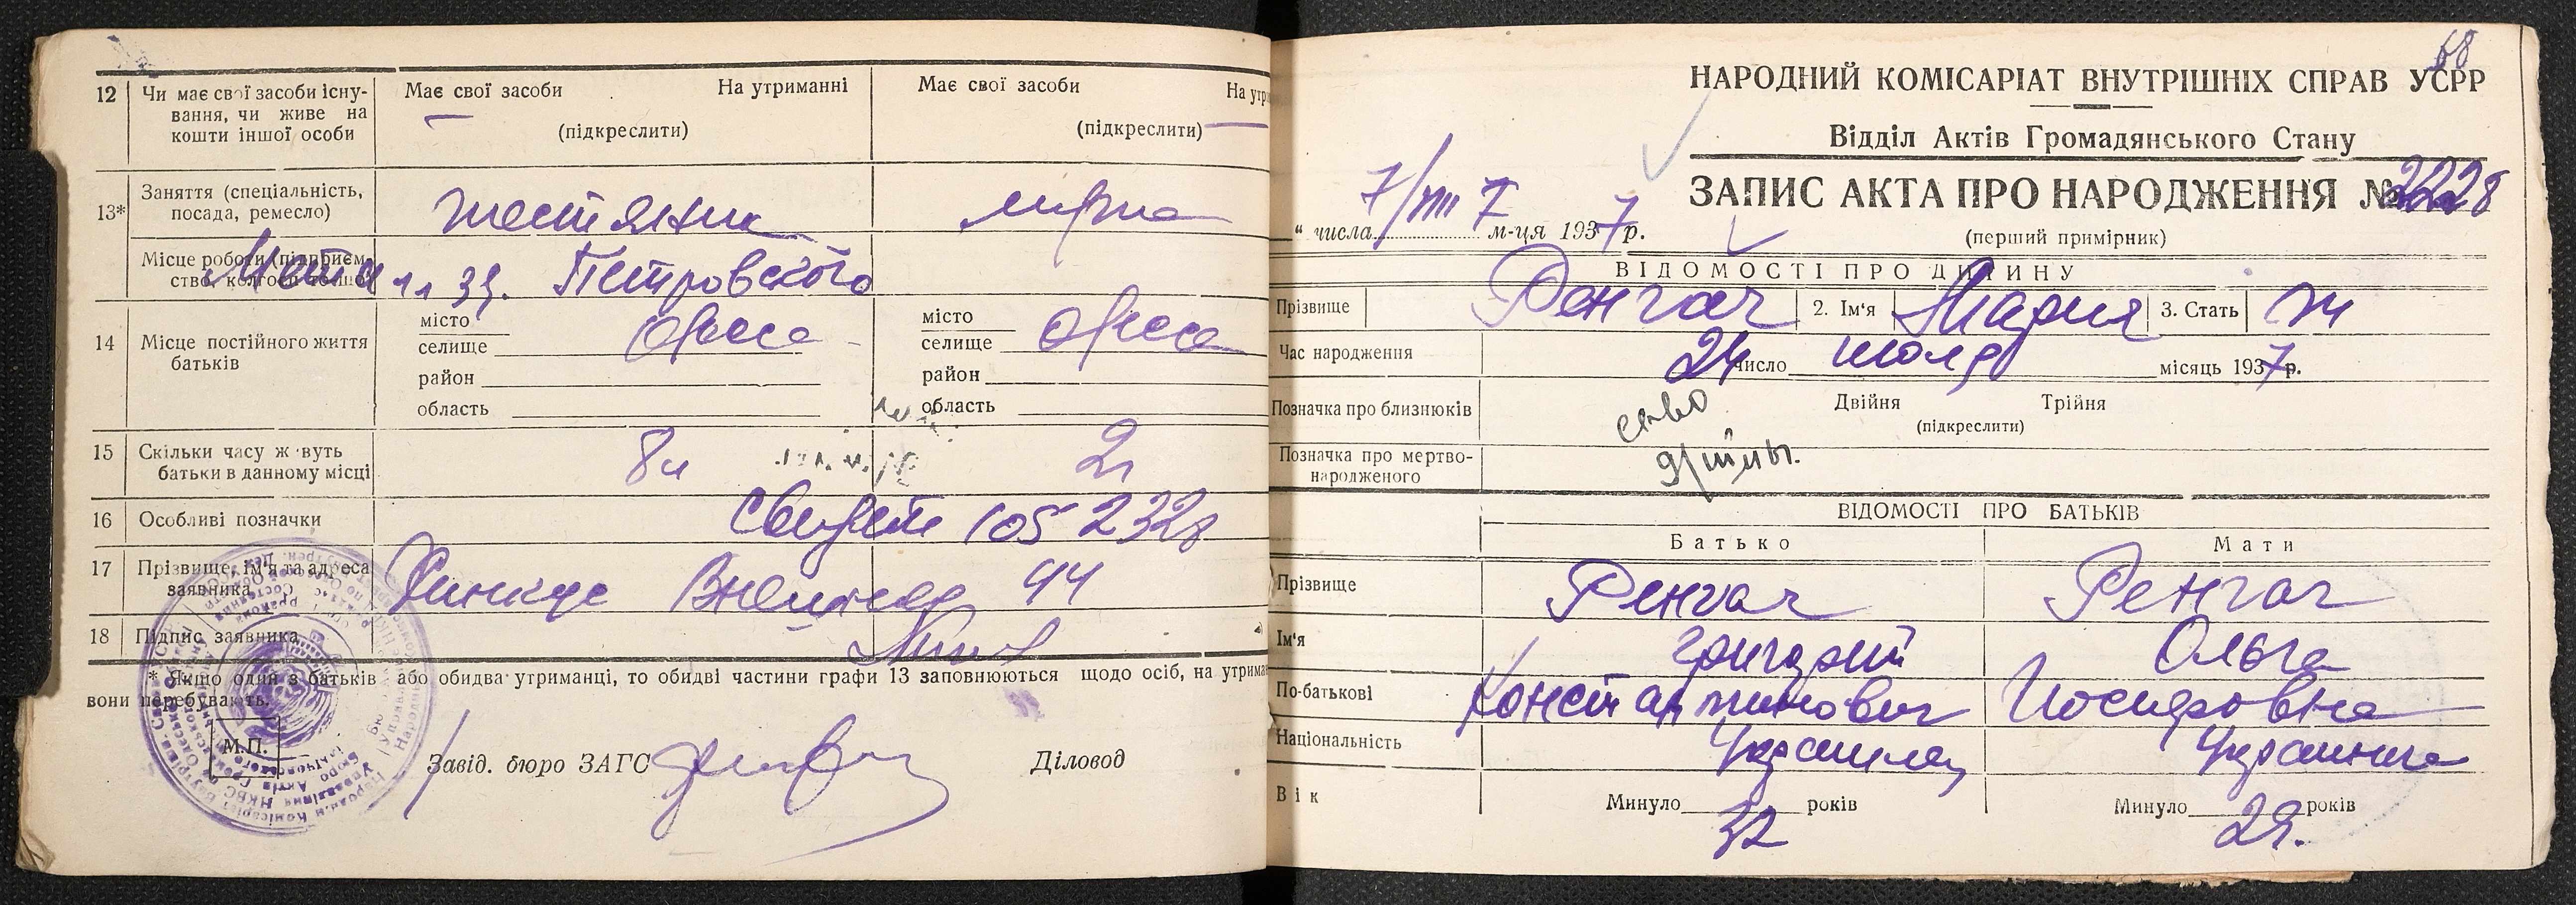 12 Чи має свої засоби існу-
вання, чи живе на
кошти іншої особи
Має свої засоби На утриманні
(підкреслити)
Має свої засоби На утри
(підкреслити)
13* Заняття (спеціальність,
посада, ремесло)
жестяник
Місце роботи (підприєм-
ство, колгосп тощо)
Петровского
14 Місце постійного життя
батьків
місто
селище Одесса
район
область
місто
селище Одесса
район
область
15 Скільки часу живуть
батьки в данному місці
8л 2г
16 Особливі позначки
17 Прізвище, ім'я та адреса
заявника
44
18 Підпис заявника
* Якщо один з батьків або обидва утриманці, то обидві частини графи 13 заповнюються щодо осіб, на утрима
вони перебувають.
М.П.
Завід. бюро ЗАГС Діловод
68
НАРОДНИЙ КОМІСАРІАТ ВНУТРІШНІХ СПРАВ УСРР
Відділ Актів Громадянського Стану
ЗАПИС АКТА ПРО НАРОДЖЕННЯ № 2228
„ числа 7/VIII 7 м-ця 1937 р.
(перший примірник)
ВІДОМОСТІ ПРО ДИТИНУ
Прізвище Ренгач 2. Ім'я Мария 3. Стать ж
Час народження 24 число июля місяць 1937 р.
Позначка про близнюків
Двійня Трійня
(підкреслити)
Позначка про мертво-
народженого
ВІДОМОСТІ ПРО БАТЬКІВ
Батько Мати
Прізвище Ренгач Ренгач
Ім'я Григорий Ольга
По-батькові Константинович Иосифовна
Національність Украинец Украинка
Вік Минуло 32 років Минуло 29. років